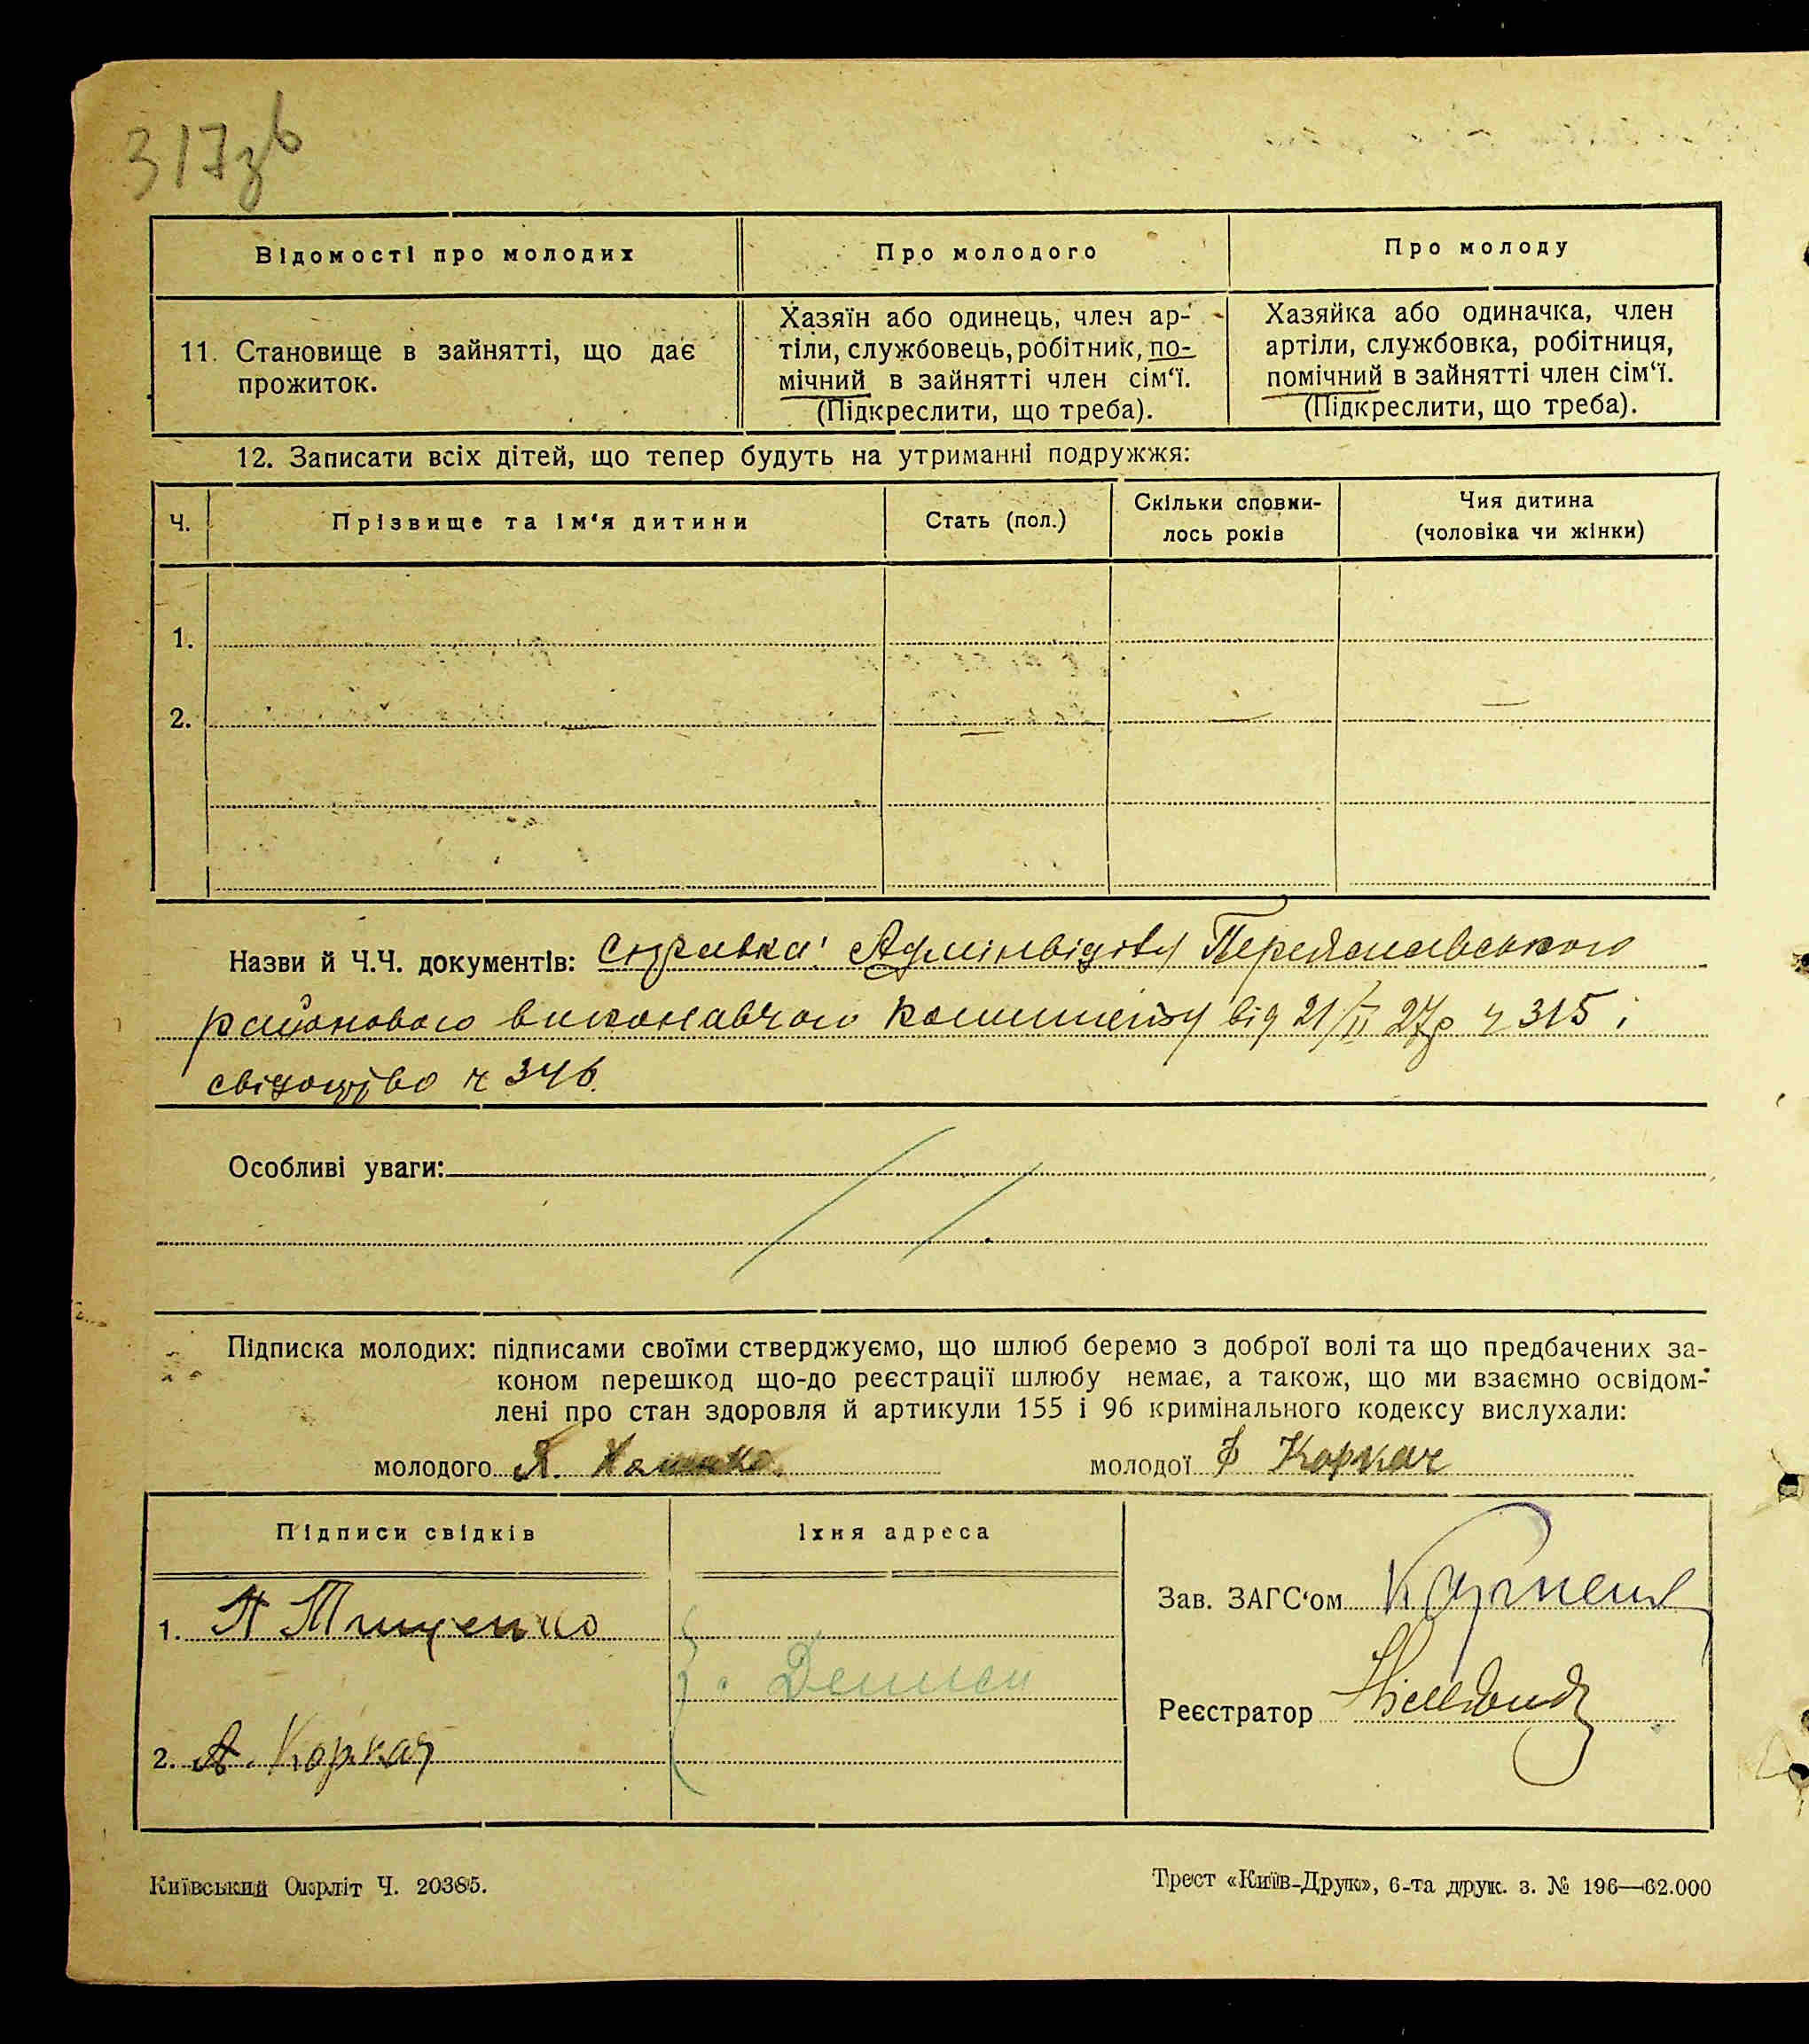 317зв
Відомості про молодих
Про молодого
Про молоду
11. Становище в зайнятті, що дає
прожиток.
Хазяїн або одинець, член ар-
тіли, службовець, робітник, по-
мічний в зайнятті член сім‘ї.
(Підкреслити, що треба).
Хазяйка або одиначка, член
артіли, службовка, робітниця,
помічний в зайнятті член сім‘ї.
(Підкреслити, що треба).
12. Записати всіх дітей, що тепер будуть на утриманні подружжя:
Ч.
Прізвище та ім‘я дитини
Стать (пол.)
Скільки сповни-
лось років
Чия дитина
(чоловіка чи жінки)
1.
2.
Назви й Ч.Ч. документів: Справка Адмінвідділу Переяславського
районового виконавчого комитету від 21/II 27р ч 315 і
свідоцтво ч 346.
Особливі уваги:
Підписка молодих: підписами своїми стверджуємо, що шлюб беремо з доброї волі та що предбачених за-
коном перешкод що-до реєстрації шлюбу немає, а також, що ми взаємно освідом-
лені про стан здоровля й артикули 155 і 96 кримінального кодексу вислухали:
молодого Я.
молодої Ф Коркач
Підписи свідків
Їхня адреса
1. П Тищенко
с. Деньги
2. А. Коркач
Зав. ЗАГС‘ом
Реєстратор
Київський Окрліт Ч. 20385.
Трест «Київ-Друк», 6-та друк. з. № 196—62.000